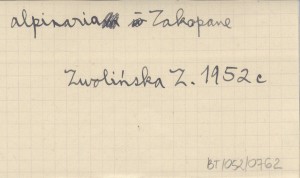 alpinaria Zakopane
Zwolińska Z. 1952 c
BT/052/0762